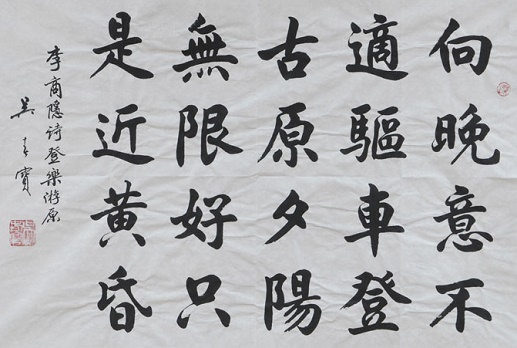 向晚意不
適驅車登
古原夕陽
無限好只
是近黃昏
李商隐诗登樂游原
吴